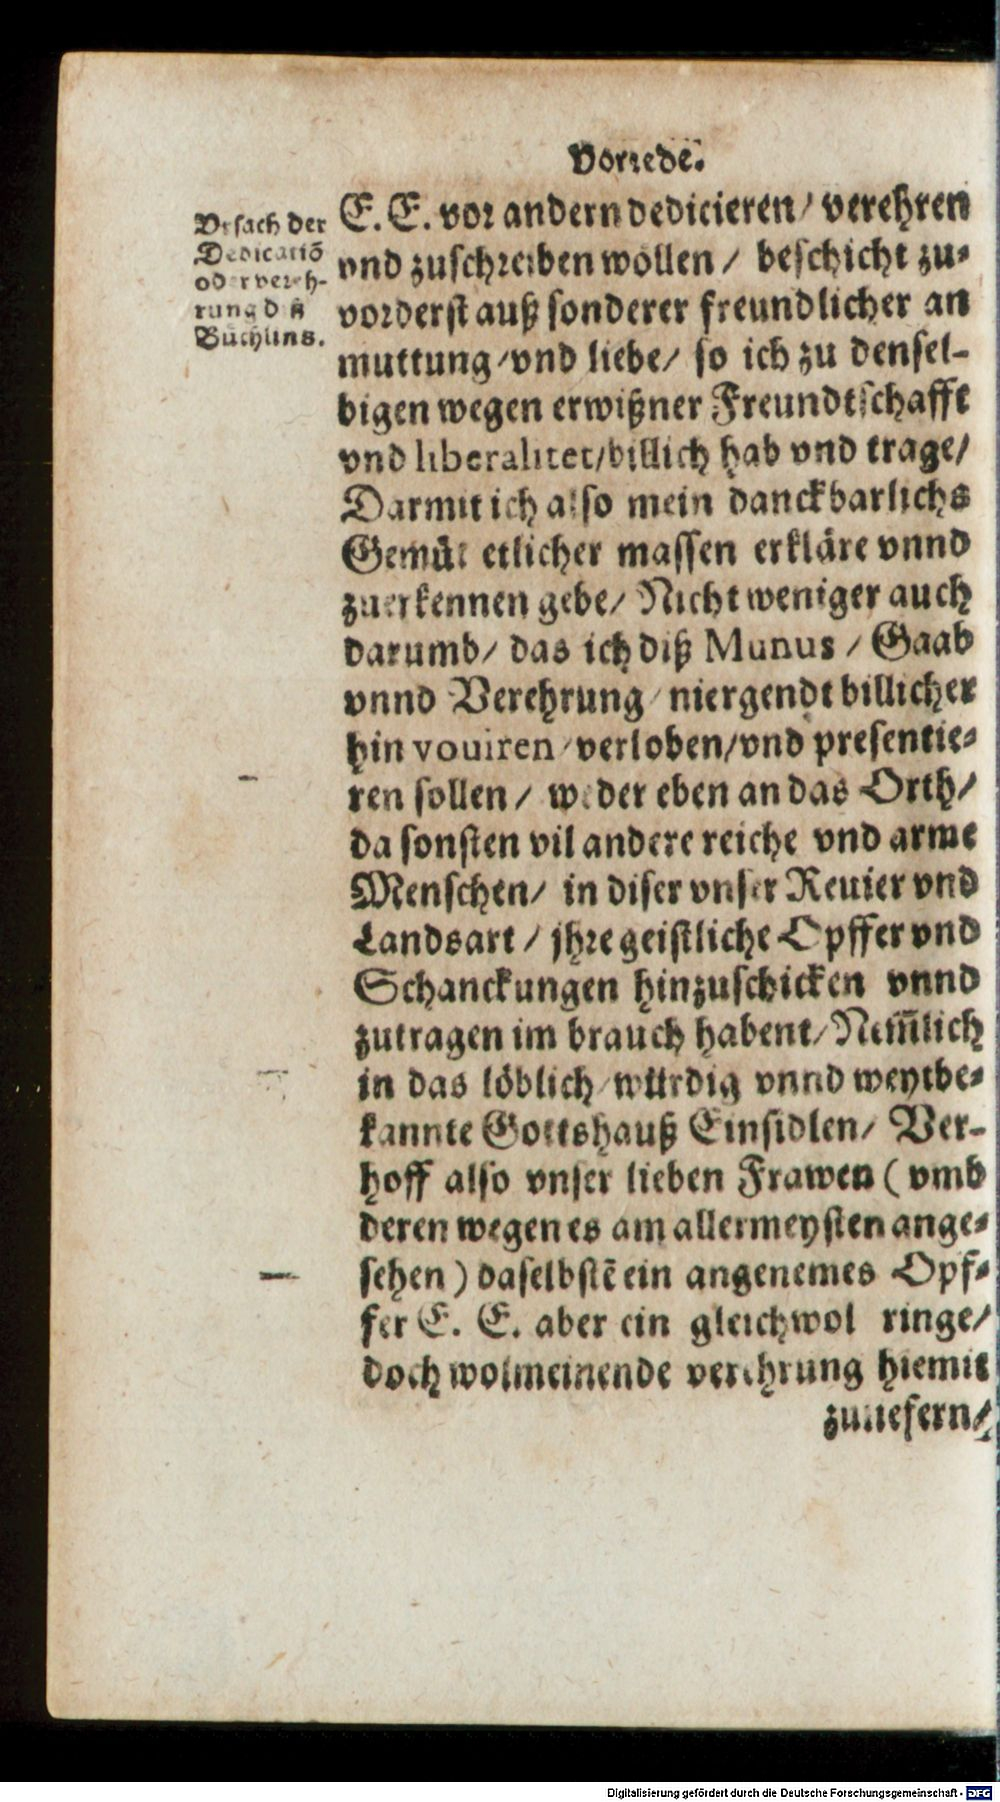 Vorrede.
Vrsach der
Dedicatiõ
oder vereh-
rung diß
Büchlins.
E. E. vor andern dedicieren/ verehren
vnd zuschreiben wöllen/ beschicht zu-
vorderst auß sonderer freundlicher an
muttung/ vnd liebe/ so ich zu densel-
bigen wegen erwißner Freundtschafft
vnd liberalitet/ billich hab vnd trage/
Darmit ich also mein danckbarlichs
Gemüt etlicher massen erkläre vnnd
zuerkennen gebe/ Nicht weniger auch
darumb/ das ich diß Munus/ Gaab
vnnd Verehrung/ niergendt billicher
hin vouiren/ verloben/ vnd presentie-
ren sollen/ weder eben an das Orth/
da sonsten vil andere reiche vnd arme
Menschen/ in diser vnser Reuier vnd
Landsart/ jhre geistliche Opffer vnd
Schanckungen hinzuschicken vnnd
zutragen im brauch habent/ Nem̃lich
in das löblich/ würdig vnnd weytbe-
kannte Gottshauß Einsidlen/ Ver-
hoff also vnser lieben Frawen (vmb
deren wegen es am allermeysten ange-
sehen) daselbstẽ ein angenemes Opf-
fer E. E. aber ein gleichwol ringe/
doch wolmeinende verehrung hiemit
zuliefern/
Digitalisierung gefördert durch die Deutsche Forschungsgemeinschaft - DFG